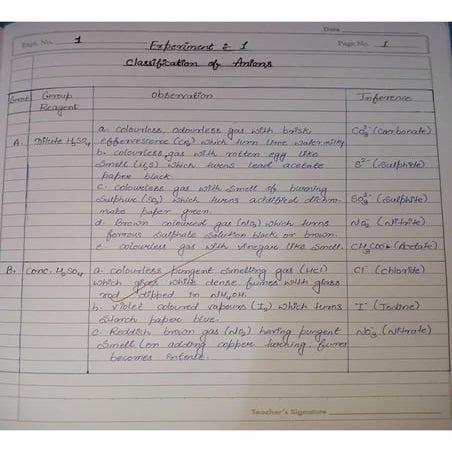 Date
Expt. No. 1
Page No. 1
Experiment : 1
Classification of Anions
Group
Group Reagent
Observation
Inference
A.
Dilute H₂SO₄
a. colourless, odourless gas with brisk
effervescence (CO₂) which turn lime water milky
CO₃²⁻ (carbonate)
b. colourless gas with rotten egg like
smell (H₂S) which turns lead acetate
paper black.
S²⁻ (Sulphide)
c. colourless gas with smell of burning
sulphur (SO₂) which turns acidified dichro-
mate paper green.
SO₃²⁻ (Sulphite)
d. Brown coloured gas (NO₂) which turns
ferrous sulphate solution black or brown.
NO₂⁻ (Nitrite)
e. colourless gas with vinegar like smell.
CH₃COO⁻ (Acetate)
B.
Conc. H₂SO₄
a. colourless pungent smelling gas (HCl)
which gives white dense fumes with glass
rod dipped in NH₄OH.
Cl⁻ (chloride)
b. Violet coloured vapours (I₂) which turns
starch paper blue.
I⁻ (Iodine)
c. Reddish brown gas (NO₂) having pungent
smell (on adding copper turning, fumes
becomes intense.
NO₃⁻ (Nitrate)
Teacher's Signature